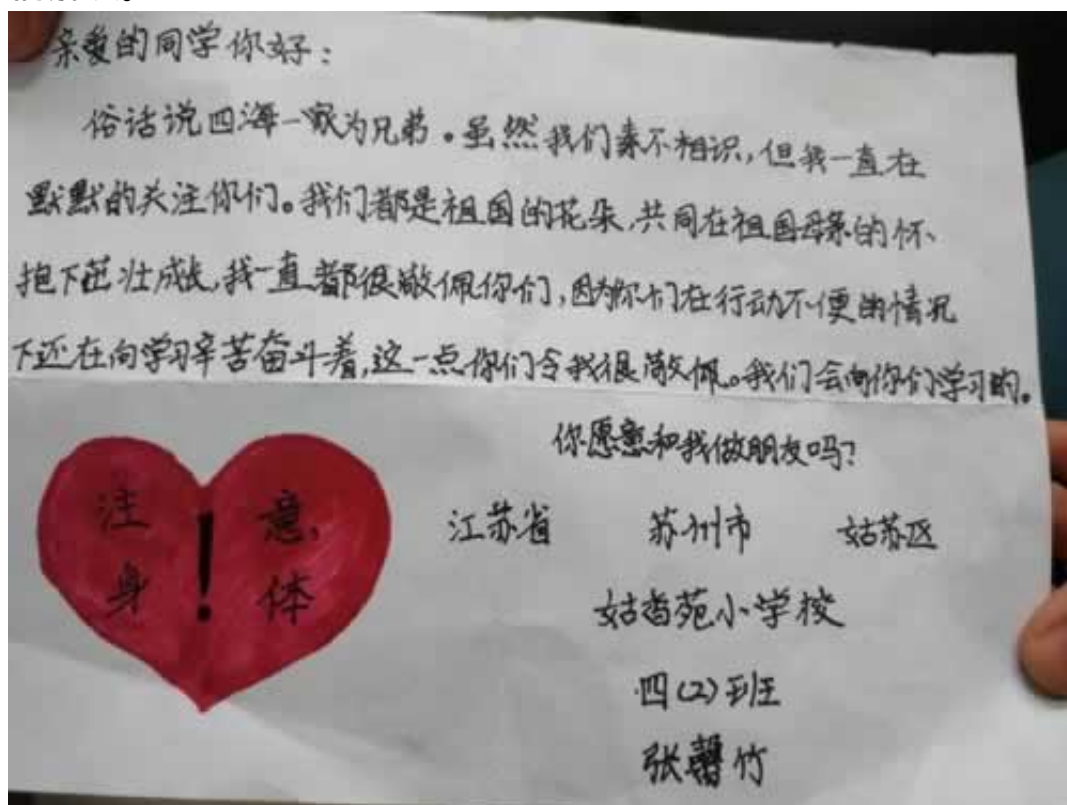 亲爱的同学你好：
俗话说四海一家为兄弟。虽然我们素不相识，但我一直在
默默的关注你们。我们都是祖国的花朵，共同在祖国母亲的怀
抱下茁壮成长，我一直都很敬佩你们，因为你们在行动不便的情况
下还在向学习辛苦奋斗着，这一点你们令我很敬佩。我们会向你们学习的。
你愿意和我做朋友吗？
注意，
身！体
江苏省 苏州市 姑苏区
姑香苑小学校
四（2）班
张馨竹